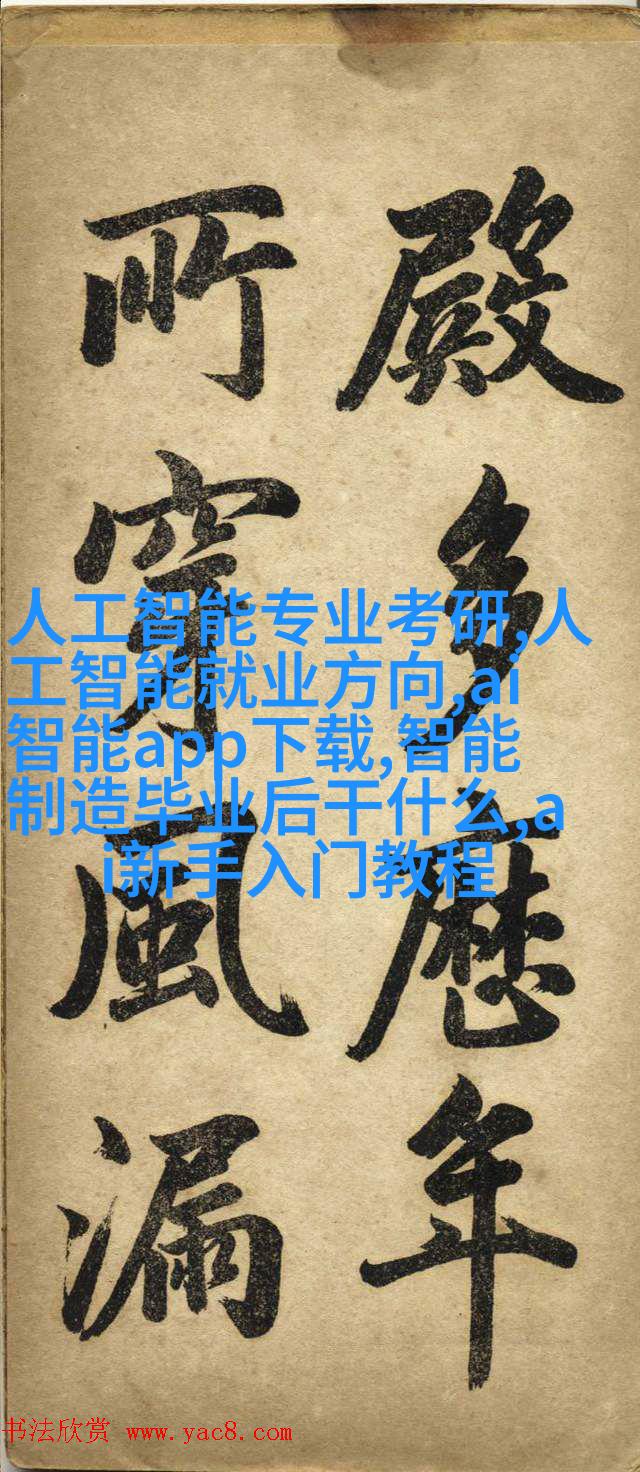 殿多歷年
所穿風漏
人工智能专业考研,人
工智能就业方向,ai
智能app下载,智能
制造毕业后干什么,a
i新手入门教程
书法欣赏 www.yac8.com